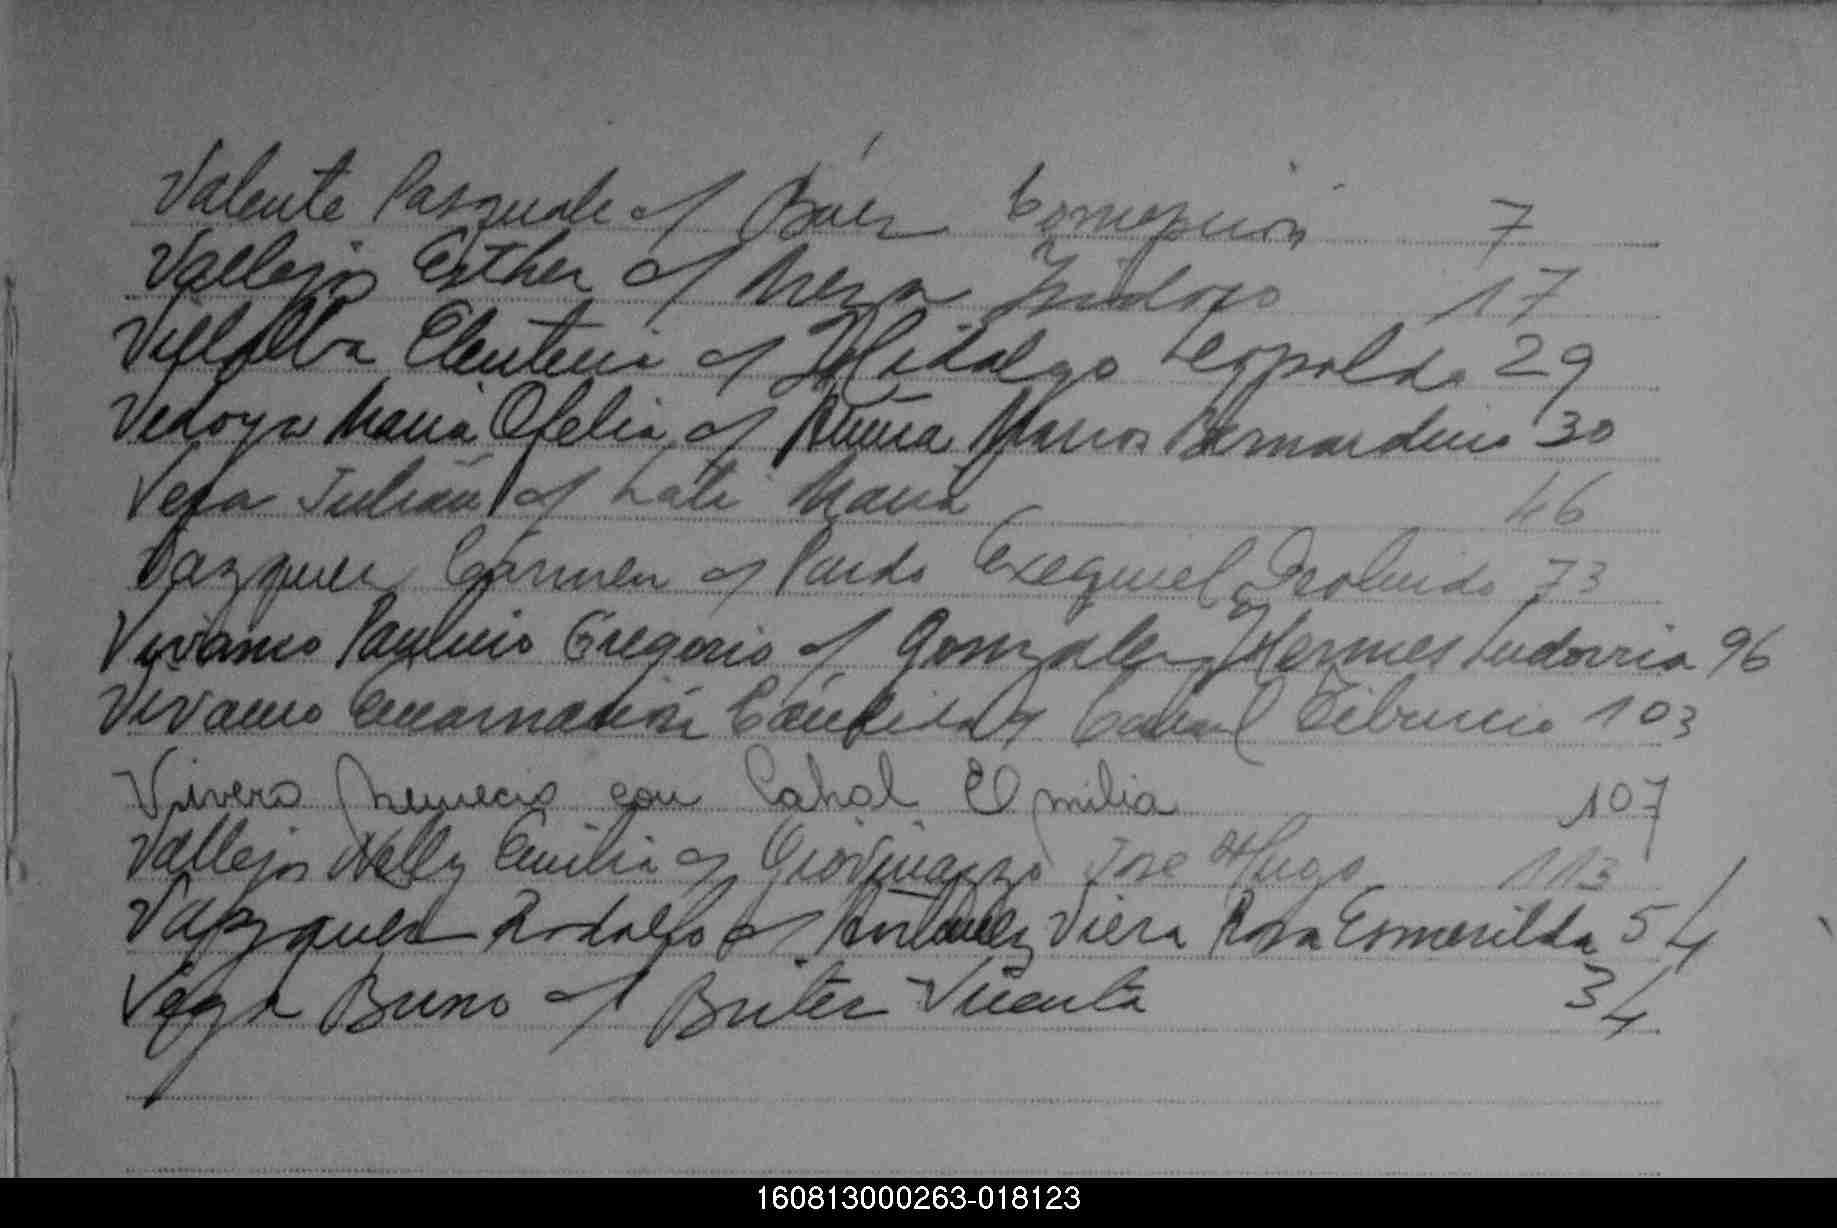 Valente Pasquale c/ Báez Concepción 7
Vallejos Esther c/ Meza Isidoro 17
Villalba Eleuteria c/ Hidalgo Leopoldo 29
Vedoya Maria Ofelia c/ Marcos Bernardino 30
Vera Julián c/ María 46
Vazquez Cármen c/ Pardo Exequiel 73
Vivanco Paulino Gregorio c/ Gonzalez Hermes Ludovica 96
Vivanco Encarnación Cándida c/ Cabral Tiburcio 103
Vivero Nemecio con Cabral Emilia 107
Vallejos Nelly Emilia c/ Giovinazzo José Hugo 113
Vazquez Rodolfo c/ Viera Rosa Esmerilda 54
Vega Bruno c/ Britez Vicenta 34
160813000263-018123